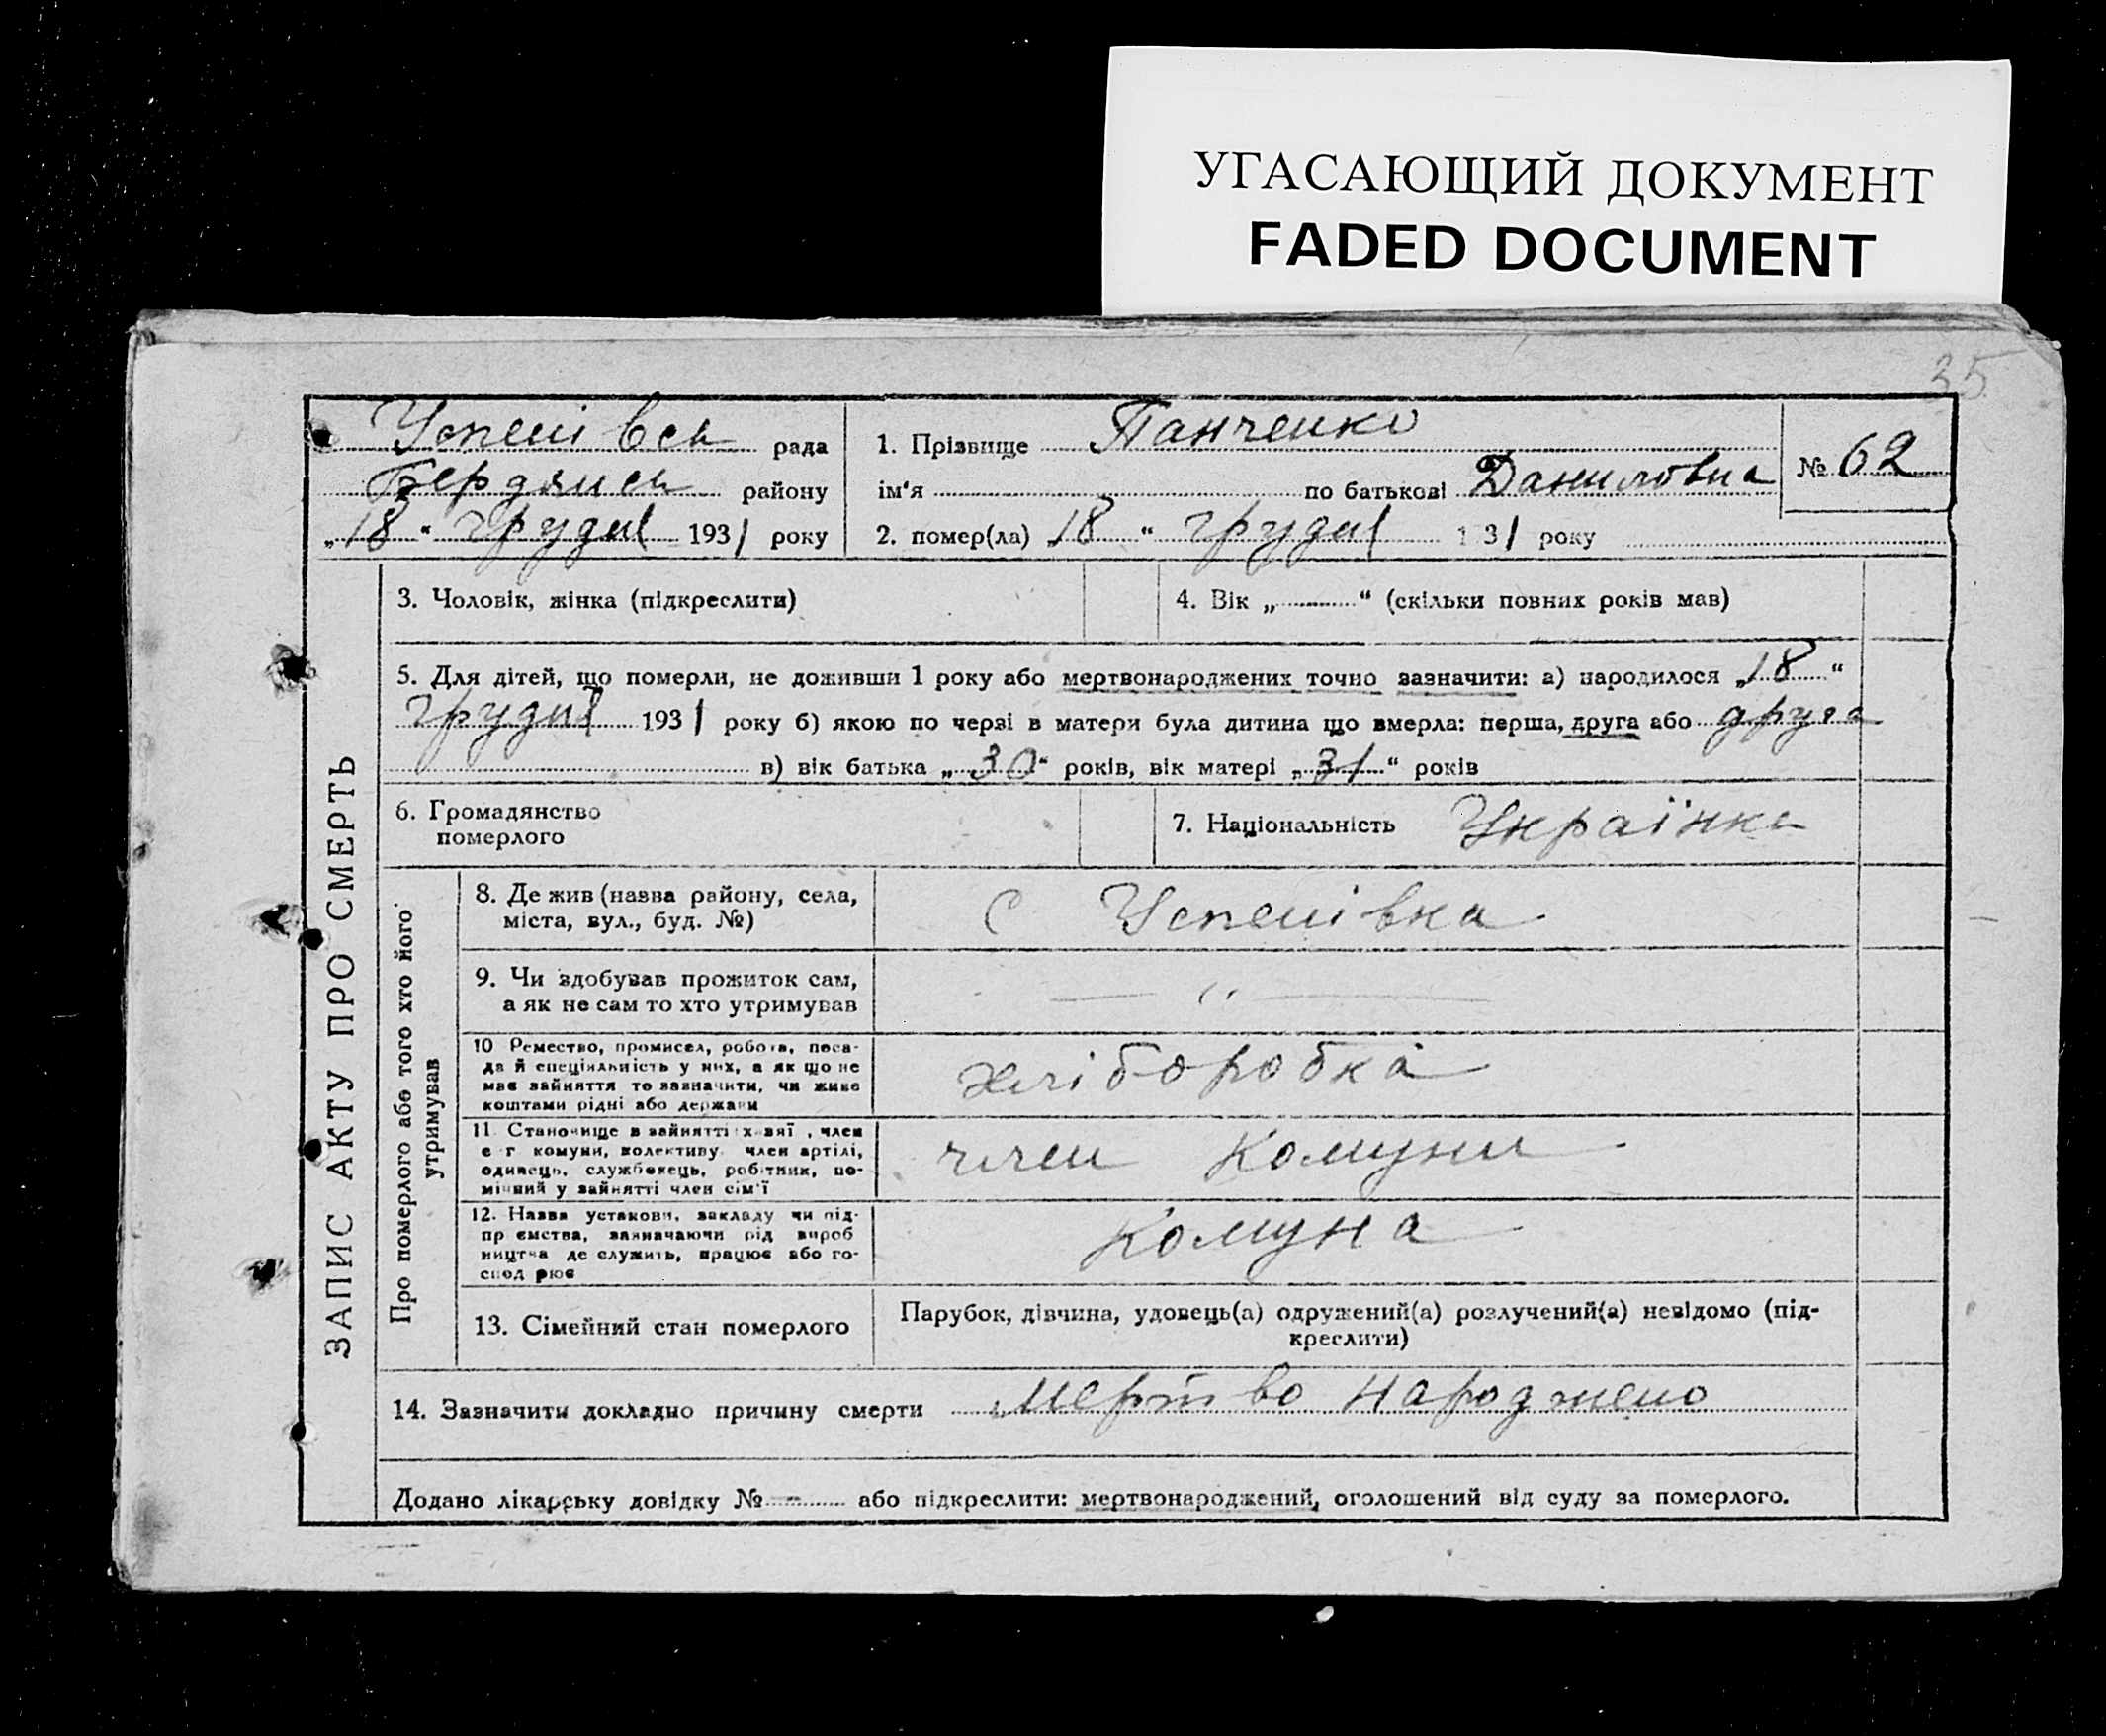 УГАСАЮЩИЙ ДОКУМЕНТ
FADED DOCUMENT
35
Успенівсь рада
Бердянсь району
„18“ грудня 1931 року
1. Прізвище Панченко
ім'я по батькові Даниловна
№ 62
2. помер(ла) „18“ грудня 1 31 року
ЗАПИС АКТУ ПРО СМЕРТЬ
3. Чоловік, жінка (підкреслити)
4. Вік „ “ (скільки повних років мав)
5. Для дітей, що померли, не доживши 1 року або мертвонароджених точно зазначити: а) народилося „18“
грудня 1931 року б) якою по черзі в матери була дитина що вмерла: перша, друга або друга
в) вік батька „30“ років, вік матері „31“ років
6. Громадянство
померлого
7. Національність Українка
Про померлого або того хто його
утримував
8. Де жив (назва району, села,
міста, вул., буд. №)
с Успенівка
9. Чи здобував прожиток сам,
а як не сам то хто утримував
— „ —
10 Ремество, промисел, робота, поса-
да й спеціяльність у них, а як що не
має зайняття то зазначити, чи живе
коштами рідні або держави
хліборобка
11. Становище в зайнятті , член
с г комуни, колективу член артілі,
одинець, службовець, робітник, по-
мічний у зайнятті член сім'ї
член комуни
12. Назва установи, закладу чи під-
пр ємства, зазначаючи рід вироб
ництва де служить, працює або го-
спод рює
Комуна
13. Сімейний стан померлого
Парубок, дівчина, удовець(а) одружений(а) розлучений(а) невідомо (під-
креслити)
14. Зазначити докладно причину смерти Мертво народжено
Додано лікарську довідку № - або підкреслити: мертвонароджений, оголошений від суду за померлого.